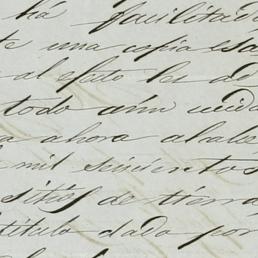 ha facilitado
te una copia esa
al efecto les ad
todo aún cuida
ahora al
mil seiscientos
sitios de tierra
título dado por